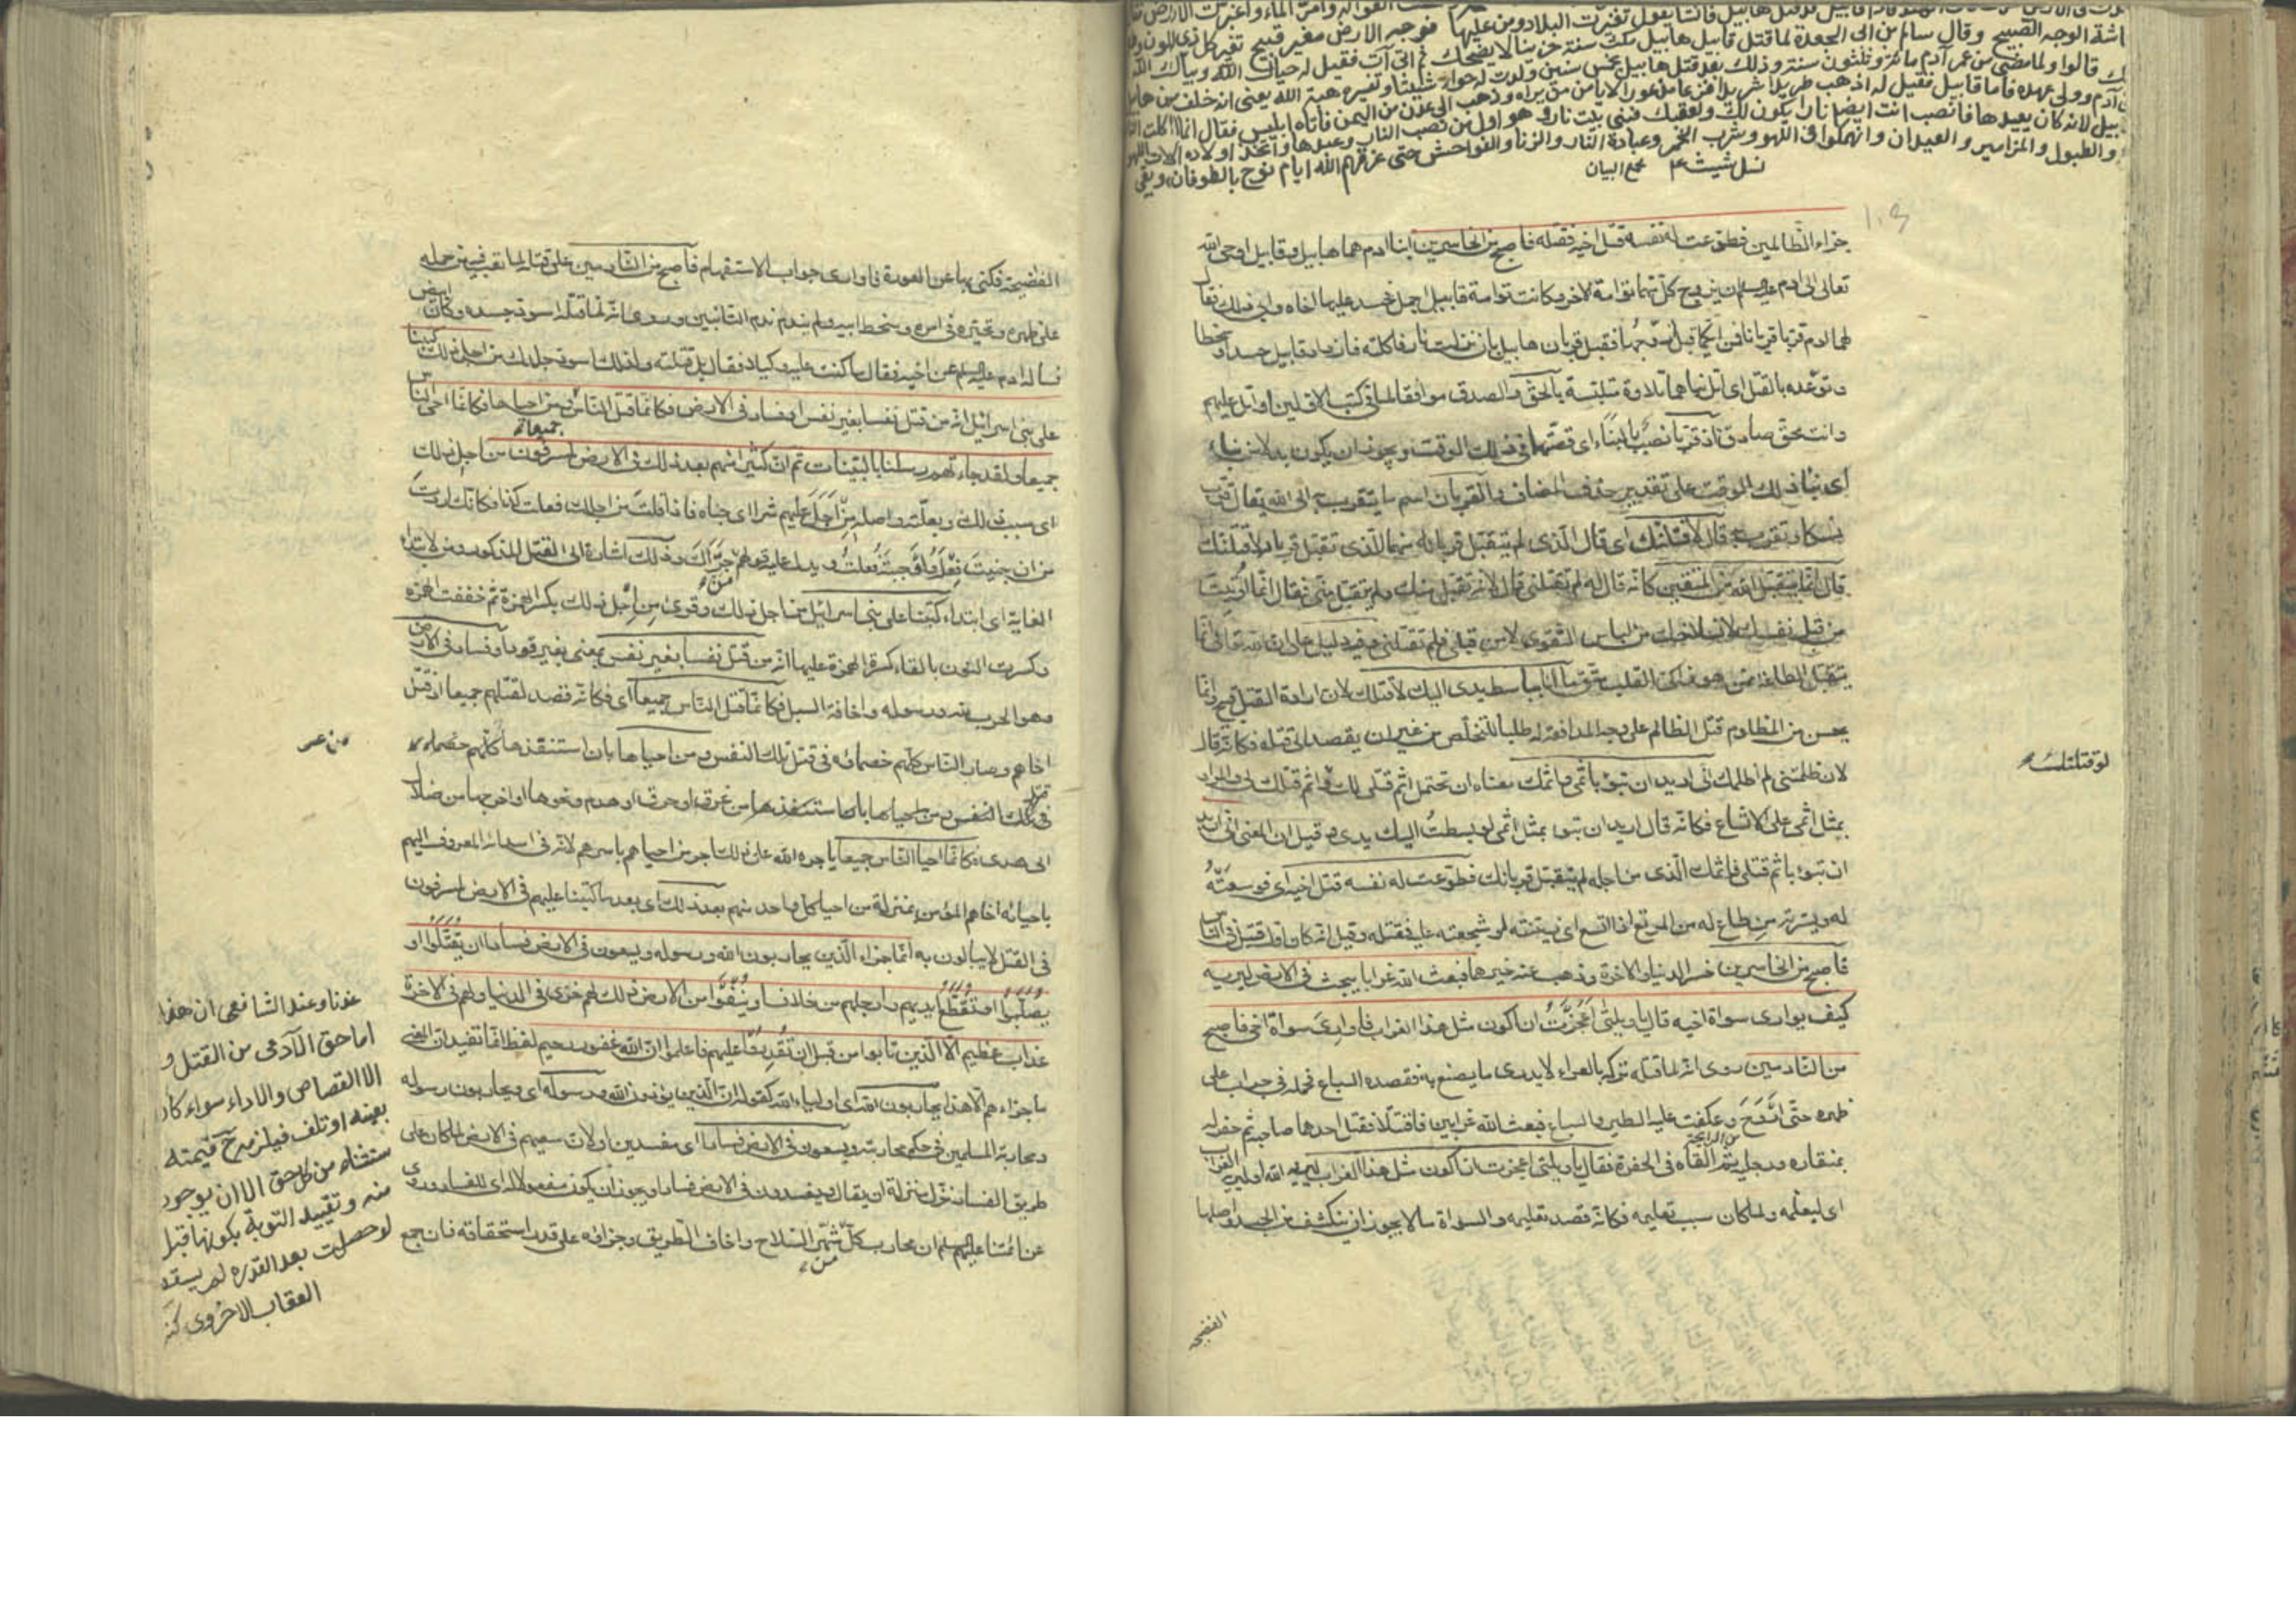 اشة الوجه الصبيح وقال سالم بن ابى الجعدة لما قتل قابيل هابيل مكث سنة حزينا لا يضحك ثم اتى آت فقيل له حياك الله وبياك
قالوا ولما مضى من عمر آدم مائة وثلثون سنة وذلك بعد قتل هابيل بخمس سنين ولدت له حواء شيثا وتفسيره هبة الله يعنى انه خلف من هابيل
آدم وولى عهده فاما قابيل فقيل له اذهب طريدا شريدا فزعا مذعورا لا يامن من يراه وذهب الى عدن من اليمن فاتاه ابليس فقال انما اكلت النار
بيل لانه كان يعبدها فانصب انت ايضا نارا يكون لك ولعقبك فبنى بيت نار وهو اول من نصب النار وعبدها واتخذ اولاده الات اللهو
والطبول والمزامير والعيدان وانهمكوا فى اللهو وشرب الخمر وعبادة النار والزنا والفواحش حتى غرقهم الله ايام نوح بالطوفان وبقى
نسل شيث ع مجمع البيان
جزاء الظالمين فطوعت له نفسه قتل اخيه فقتله فاصبح من الخاسرين ابنا ادم هما هابيل وقابيل اوحى الله
تعالى الى ادم ان يزوج كل منهما توامة الاخر وكانت توامة قابيل اجمل فحسد عليها اخاه وابى ذلك فقال
لهما ادم قربا قربانا فمن ايكما قبل زوجها فقبل قربان هابيل بان نزلت نار فاكلته فازداد قابيل حسدا وسخطا
وتوعده بالقتل اى اتل نباهما تلاوة متلبسة بالحق والصدق موافقا لما فى كتب الاولين او اتل عليهم
وانت محق صادق اذ قربا نصب بالنباء اى قصتهما فى ذلك الوقت ويجوز ان يكون بدلا من نباء
اى نبا ذلك الوقت على تقدير حذف المضاف والقربان اسم ما يتقرب به الى الله تعالى
قال لاقتلنك اى قال الذى لم يتقبل قربانه منهما للذى تقبل قربانه لاقتلنك
قال انما يتقبل الله من المتقين كانه قال له لم تقتلنى قال لانه تقبل منك ولم يتقبل منى فقال انما اوتيت
من قبل نفسك لانسلاخك من لباس التقوى لا من قبلى فلم تقتلنى وفيه دليل على ان الله تعالى انما
يتقبل الطاعة ممن هو زاكى القلب متق ما انا بباسط يدى اليك لاقتلك لان ارادة القتل قبيح وانما
يحسن من المظلوم قتل الظالم على وجه المدافعة له طلبا للتخلص من غير ان يقصد الى قتله فكانه قال
لان ظلمتنى لم اظلمك انى اريد ان تبوء باثمى واثمك معناه ان تحتمل اثم قتلى لك واثم قتلك لى والمراد
بمثل اثمى على الاتساع فكانه قال اريد ان تبوء بمثل اثمى لو بسطت اليك يدى وقيل ان المعنى انى اريد
ان تبوء باثم قتلى واثمك الذى من اجله لم يتقبل قربانك فطوعت له نفسه قتل اخيه اى فوسعته
له ويسرته من طاع له من المرتع اذا اتسع اى زينته له وشجعته عليه فقتله وقيل انه كان اول قتيل فى الناس
فاصبح من الخاسرين خسر الدنيا والاخرة وذهب عنه خيرهما فبعث الله غرابا يبحث فى الارض ليريه
كيف يوارى سواة اخيه قال يا ويلتى اعجزت ان اكون مثل هذا الغراب فاوارى سواة اخى فاصبح
من النادمين روى انه لما قتله تركه بالعراء لا يدرى ما يصنع به فقصده السباع فحمله فى جراب على
ظهره حتى اروح وعكفت عليه الطير والسباع فبعث الله غرابين فاقتتلا فقتل احدهما صاحبه ثم حفر له
بمنقاره ورجليه ثم القاه فى الحفرة فقال يا ويلتى اعجزت ان اكون مثل هذا الغراب ليريه الله او ليريه الغراب
اى ليعلمه ولما كان سبب تعليمه فكانه قصد تعليمه والسواة ما لا يجوز ان ينكشف من الجسد واصلها
لو قتلتك
الفضيحة
الفضيحة فكنى بها عن العورة فاوارى جواب الاستفهام فاصبح من النادمين على قتله لما تعب فيه من حمله
على ظهره وتحيره فى امره وسخط ابيه ولم يندم ندم التائبين وروى انه لما قتله اسود جسده وكان ابيض
فساله ادم عن اخيه فقال ما كنت عليه وكيلا فقال بل قتلته ولذلك اسود جلدك من اجل ذلك كتبنا
على بنى اسرائيل انه من قتل نفسا بغير نفس او فساد فى الارض فكانما قتل الناس جميعا ومن احياها فكانما احيى الناس
جميعا ولقد جاءتهم رسلنا بالبينات ثم ان كثيرا منهم بعد ذلك فى الارض لمسرفون من اجل ذلك
اى بسبب ذلك وبعلته واصله من اجل عليهم شرا اى جناه فاذا قلت من اجلك فعلت كذا فكانك اردت
من ان جنيت فعله واوجبته فعلت ويدل عليه قولهم من جراك وذلك اشارة الى القتل المذكور ومن لابتداء
الغاية اى ابتداء كتبنا على بنى اسرائيل من اجل ذلك وقرئ من اجل ذلك بكسر الهمزة ثم خففت الهمزة
وكسرت النون بالقاء كسرة الهمزة عليها انه من قتل نفسا بغير نفس بمعنى بغير قود او فساد فى الارض
وهو الحرب لله ورسوله واخافة السبل فكانما قتل الناس جميعا اى فكانه قصد لقتلهم جميعا اذ قتل
اخاهم وصار الناس كلهم خصماؤه فى قتل تلك النفس ومن احياها بان استنقذها
فى تلك النفس ومن احياها بان استنقذها من غرق او حرق او هدم ونحوها او اخرجها من ضلال
الى هدى فكانما احيا الناس جميعا ياجره الله على ذلك اجر من احياهم باسرهم لانه فى اسدائه المعروف اليهم
باحيائه اخاهم المؤمن بمنزلة من احيا كل واحد منهم بعد ذلك اى بعد ما كتبنا عليهم فى الارض لمسرفون
فى القتل لا يبالون به انما جزاء الذين يحاربون الله ورسوله ويسعون فى الارض فسادا ان يقتلوا او
يصلبوا او تقطع ايديهم وارجلهم من خلاف او ينفوا من الارض ذلك لهم خزى فى الدنيا ولهم فى الاخرة
عذاب عظيم الا الذين تابوا من قبل ان تقدروا عليهم فاعلموا ان الله غفور رحيم لفظ انما تفيد ان المعنى
ما جزاءهم الا هذا يحاربون الله اى اولياء الله كقوله ان الذين يؤذون الله ورسوله اى ويحاربون رسوله
ومحاربة المسلمين فى حكم محاربته ويسعون فى الارض فسادا اى مفسدين او لان سعيهم فى الارض لما كان على
طريق الفساد نزل منزلة ان يقال ويفسدون فى الارض فسادا ويجوز ان يكون مفعولا له اى للفساد وروى
عن ائمتنا ان محارب كل من شهر السلاح واخاف الطريق وجزاؤه على قدر استحقاقه فان جمع
عندنا وعند الشافعى ان هذا
اما حق الآدمى من القتل و
الا القصاص والاداء سواء كان
بعينه او تلف فيلزم قيمته
ستثناء من كل حق الا ان يوجد
منه وتقييد التوبة بكونها قبل
لو حصلت بعد القدرة لم يسقط
العقاب الاخروى